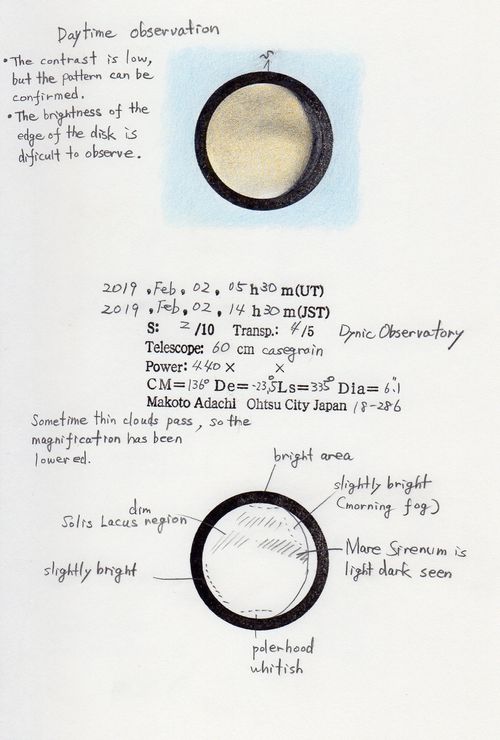 Daytime observation
• The contrast is low,
but the pattern can be
confirmed.
• The brightness of the
edge of the disk is
dificult to observe.
2019 , Feb, 02, 05 h 30 m(UT)
2019 , Feb, 02, 14 h 30 m(JST)
S: 2/10 Transp.: 4/5 Dynic Observatory
Telescope: 60 cm casegrain
Power: 440 × ×
CM=136° De=-23.5° Ls=335° Dia= 6".1
Makoto Adachi Ohtsu City Japan 18-286
Sometime thin clouds pass, so the
magnification has been
lowered.
bright area
slightly bright
(morning fog)
dim
Solis Lacus region
Mare Sirenum is
light dark seen
slightly bright
polerhood
whitish